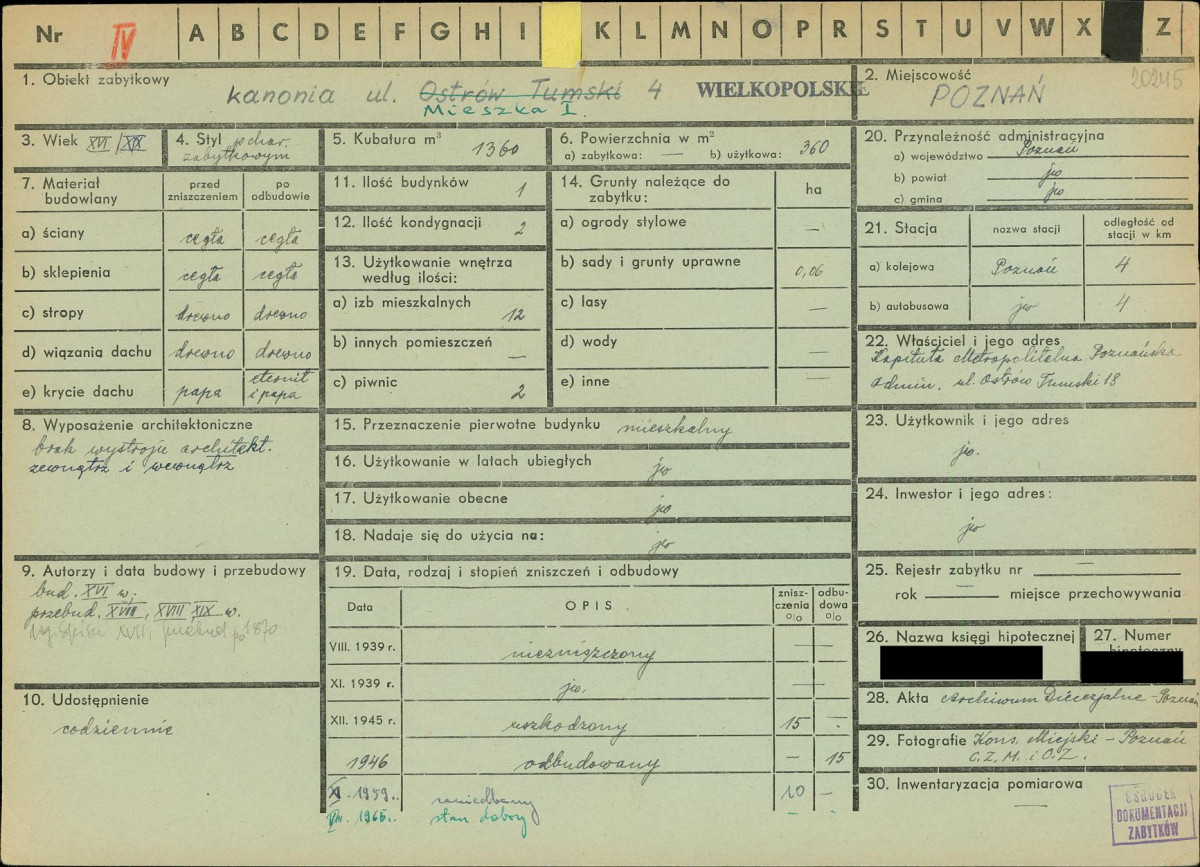 Nr IV A B C D E F G H I K L M N O P R S T U V W X Z
1. Obiekt zabytkowy
kanonia ul. Ostrów Tumski 4 WIELKOPOLSKIE
Mieszka I.
2. Miejscowość 20245
POZNAŃ
3. Wiek XVI/XIX
4. Styl p. char.
zabytkowym
5. Kubatura m³ 1360
6. Powierzchnia w m²
a) zabytkowa: — b) użytkowa: 360
20. Przynależność administracyjna
a) województwo Poznań
b) powiat jw
c) gmina jw
7. Materiał budowlany
przed zniszczeniem
po odbudowie
a) ściany cegła cegła
b) sklepienia cegła cegła
c) stropy drewno drewno
d) wiązania dachu drewno drewno
e) krycie dachu papa eternit i papa
11. Ilość budynków 1
12. Ilość kondygnacji 2
13. Użytkowanie wnętrza
według ilości:
a) izb mieszkalnych 12
b) innych pomieszczeń —
c) piwnic 2
14. Grunty należące do
zabytku: ha
a) ogrody stylowe —
b) sady i grunty uprawne 0,06
c) lasy —
d) wody —
e) inne —
21. Stacja
nazwa stacji
odległość od
stacji w km
a) kolejowa Poznań 4
b) autobusowa jw 4
22. Właściciel i jego adres
Kapituła Metropolitalna Poznańska
admin. ul. Ostrów Tumski 18
8. Wyposażenie architektoniczne
brak wystroju architekt.
zewnątrz i wewnątrz
15. Przeznaczenie pierwotne budynku mieszkalny
16. Użytkowanie w latach ubiegłych jw
17. Użytkowanie obecne jw
18. Nadaje się do użycia na: jw
23. Użytkownik i jego adres
jw.
24. Inwestor i jego adres:
jw
9. Autorzy i data budowy i przebudowy
bud. XVI w;
przebud. XVII, XVIII, XIX w.
XVII, przebud po 1870
10. Udostępnienie
codziennie
19. Data, rodzaj i stopień zniszczeń i odbudowy
Data OPIS. znisz-
czenia
o|o odbu-
dowa
o|o
VIII. 1939 r. niezniszczony —
XI. 1939 r. jw. —
XII. 1945 r. uszkodzony 15 -
1946 odbudowany — 15
XI. 1959. zaniedbany 10 —
VII. 1965. stan dobry — -
25. Rejestr zabytku nr —
rok — miejsce przechowywania
26. Nazwa księgi hipotecznej
27. Numer
hipoteczny
28. Akta Archiwum Diecezjalne - Poznań
29. Fotografie Kons. Miejski - Poznań
C.Z.M. i O.Z.
30. Inwentaryzacja pomiarowa
—
OŚRODEK
DOKUMENTACJI
ZABYTKÓW